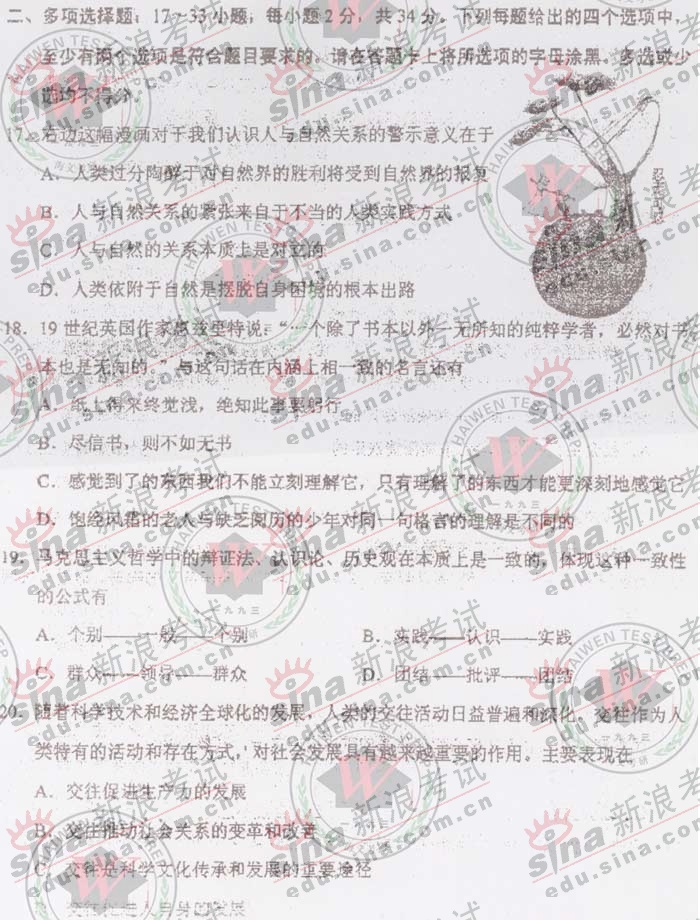 二、多项选择题：17～33小题，每小题2分，共34分。下列每题给出的四个选项中，
至少有两个选项是符合题目要求的。请在答题卡上将所选项的字母涂黑。多选或少
选均不得分。
17．右边这幅漫画对于我们认识人与自然关系的警示意义在于
A．人类过分陶醉于对自然界的胜利将受到自然界的报复
B．人与自然关系的紧张来自于不当的人类实践方式
C．人与自然的关系本质上是对立的
D．人类依附于自然是摆脱自身困境的根本出路
18．19世纪英国作家 说：“一个除了书本以外一无所知的纯粹学者，必然对书
本也是无知的。”与这句话在内涵上相一致的名言还有
A．纸上得来终觉浅，绝知此事要躬行
B．尽信书，则不如无书
C．感觉到了的东西我们不能立刻理解它，只有理解了的东西才能更深刻地感觉它
D．饱经风霜的老人与缺乏阅历的少年对同一句格言的理解是不同的
19．马克思主义哲学中的辩证法、认识论、历史观在本质上是一致的，体现这种一致性
的公式有
A．个别——一般——个别
B．实践——认识——实践
C．群众——领导——群众
D．团结——批评——团结
20．随着科学技术和经济全球化的发展，人类的交往活动日益普遍和深化。交往作为人
类特有的活动和存在方式，对社会发展具有越来越重要的作用。主要表现在
A．交往促进生产力的发展
B．交往推动社会关系的变革和改善
C．交往是科学文化传承和发展的重要途径
交往促进人自身的发展
sina新浪考试
edu.sina.com.cn
HAIWEN TEST PREP
一九九三